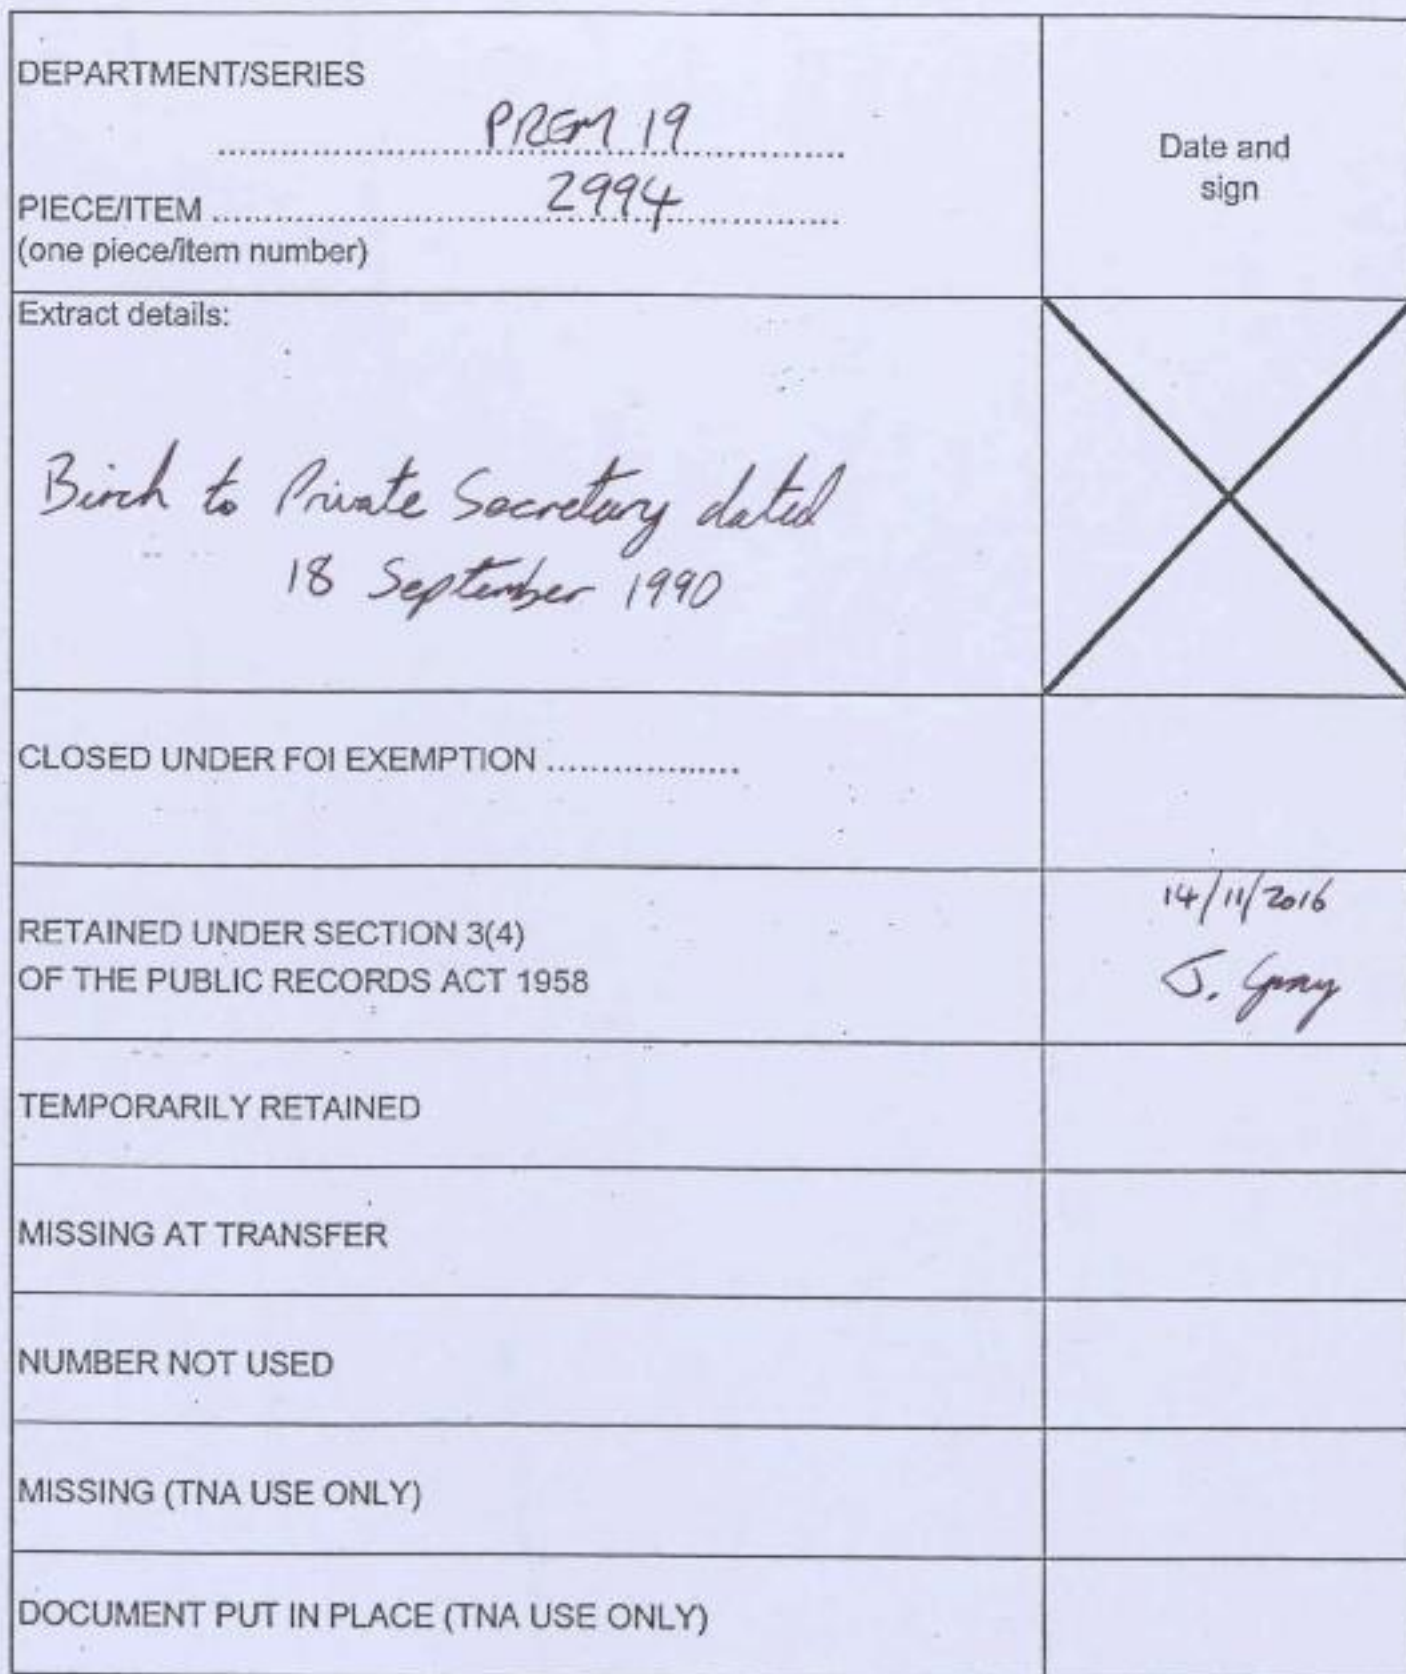 DEPARTMENT/SERIES
PREM 19
Date and
sign
PIECE/ITEM 2994
(one piece/item number)
Extract details:
Birch to Private Secretary dated
18 September 1990
CLOSED UNDER FOI EXEMPTION ..................
RETAINED UNDER SECTION 3(4)
OF THE PUBLIC RECORDS ACT 1958
14/11/2016
J. Gray
TEMPORARILY RETAINED
MISSING AT TRANSFER
NUMBER NOT USED
MISSING (TNA USE ONLY)
DOCUMENT PUT IN PLACE (TNA USE ONLY)